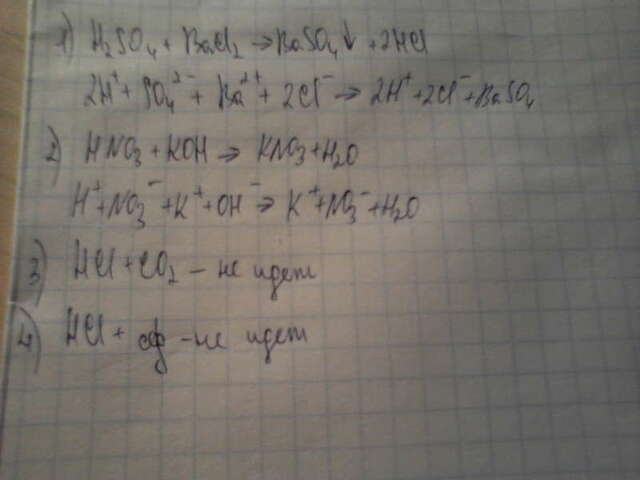 1) H₂SO₄ + BaCl₂ → BaSO₄↓ + 2HCl
2H⁺ + SO₄²⁻ + Ba²⁺ + 2Cl⁻ → 2H⁺ + 2Cl⁻ + BaSO₄
2) HNO₃ + KOH → KNO₃ + H₂O
H⁺ + NO₃⁻ + K⁺ + OH⁻ → K⁺ + NO₃⁻ + H₂O
3) HCl + CO₂ - не идет
4) HCl + - не идет